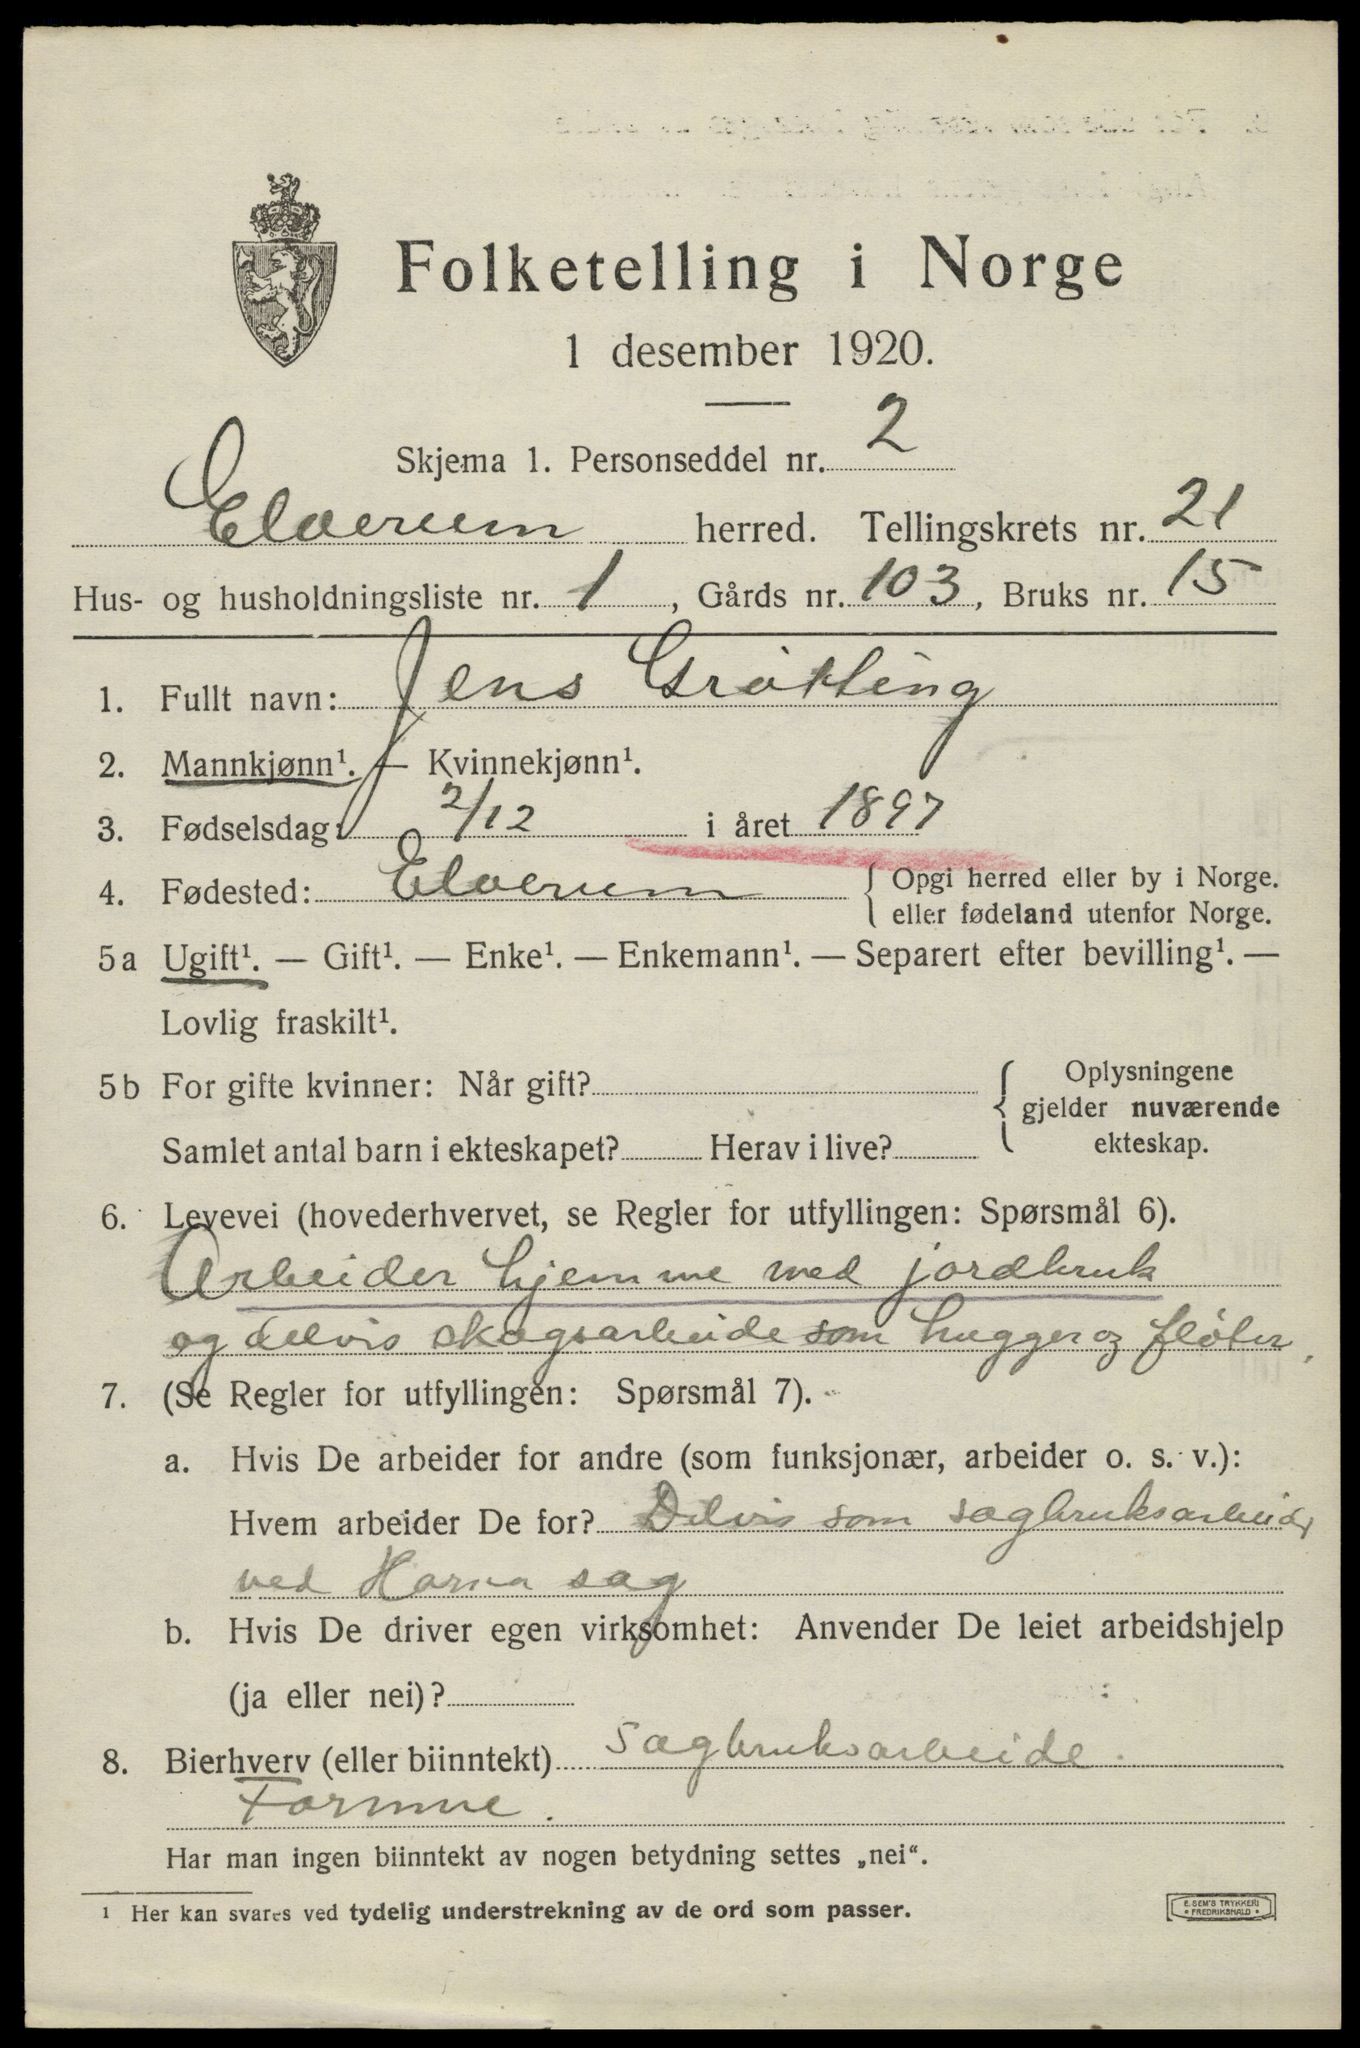 Folketelling i Norge
1 desember 1920.
Skjema 1. Personseddel nr. 2
Elverum herred. Tellingskrets nr. 21
Hus- og husholdningsliste nr. 1, Gårds nr. 103, Bruks nr. 15
1. Fullt navn: Jens Grøtting
2. Mannkjønn¹. — Kvinnekjønn¹.
3. Fødselsdag: 2/12 i året 1897
4. Fødested: Elverum { Opgi herred eller by i Norge.
eller fødeland utenfor Norge.
5a Ugift¹. — Gift¹. — Enke¹. — Enkemann¹. — Separert efter bevilling¹. —
Lovlig fraskilt¹.
5b For gifte kvinner: Når gift? { Oplysningene
gjelder nuværende
Samlet antal barn i ekteskapet? Herav i live? ekteskap.
6. Levevei (hovederhvervet, se Regler for utfyllingen: Spørsmål 6).
Arbeider hjemme med jordbruk
og delvis skogsarbeide som hugger og fløter.
7. (Se Regler for utfyllingen: Spørsmål 7).
a. Hvis De arbeider for andre (som funksjonær, arbeider o. s. v.):
Hvem arbeider De for? Delvis som sagbruksarbeider
ved sag
b. Hvis De driver egen virksomhet: Anvender De leiet arbeidshjelp
(ja eller nei)?
8. Bierhverv (eller biinntekt) Sagbruksarbeide.
Formue.
Har man ingen biinntekt av nogen betydning settes „nei“.
¹ Her kan svares ved tydelig understrekning av de ord som passer.
E. SEM'S TRYKKERI
* FREDRIKSHALD *